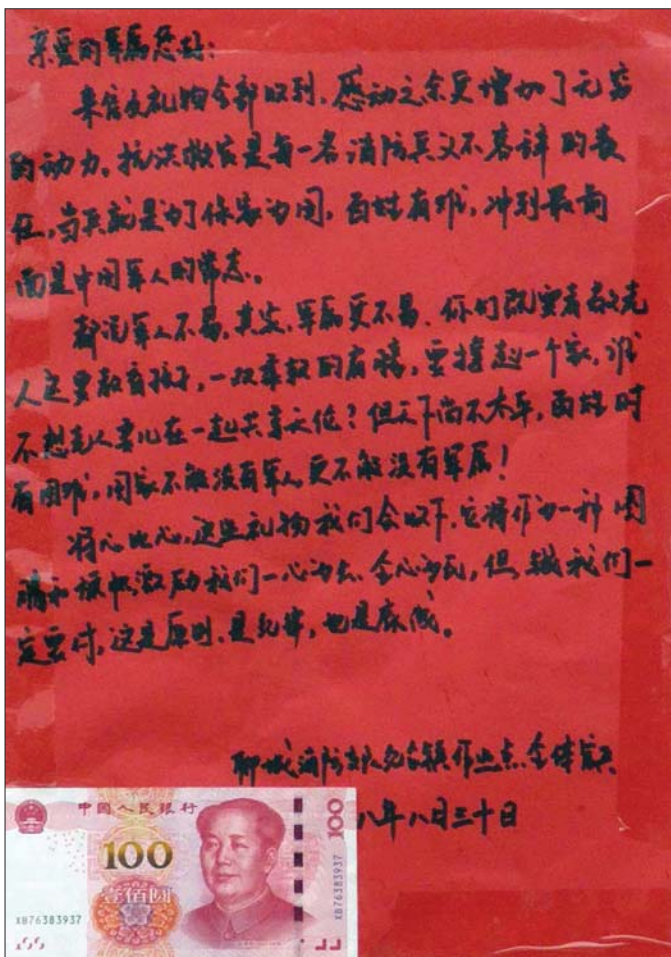 亲爱的军属您好:
来信及礼物全部收到,感动之余更增加了无穷
的动力。抗洪救灾是每一名消防兵义不容辞的责
任,当兵就是为了保家为国,百姓有难,冲到最前
面是中国军人的常态。
都说军人不易,其实,军属更不易,你们既要看老
人还要教育孩子,一双柔软的肩膀,要撑起一个家,谁
不想老人妻儿在一起共享天伦?但天下尚不太平,百姓时
有困难,国家不能没有军人,更不能没有军属!
将心比心,这些礼物我们会收下,它将作为一种
和 激励我们一心为 全心为民,但,钱我们一
定要付,这是原则,是纪律,也是底线。
聊城消防支队 作业点全体官兵
八年八月三十日
中国人民银行
100
100
壹佰圆
XB76383937
XB76383937